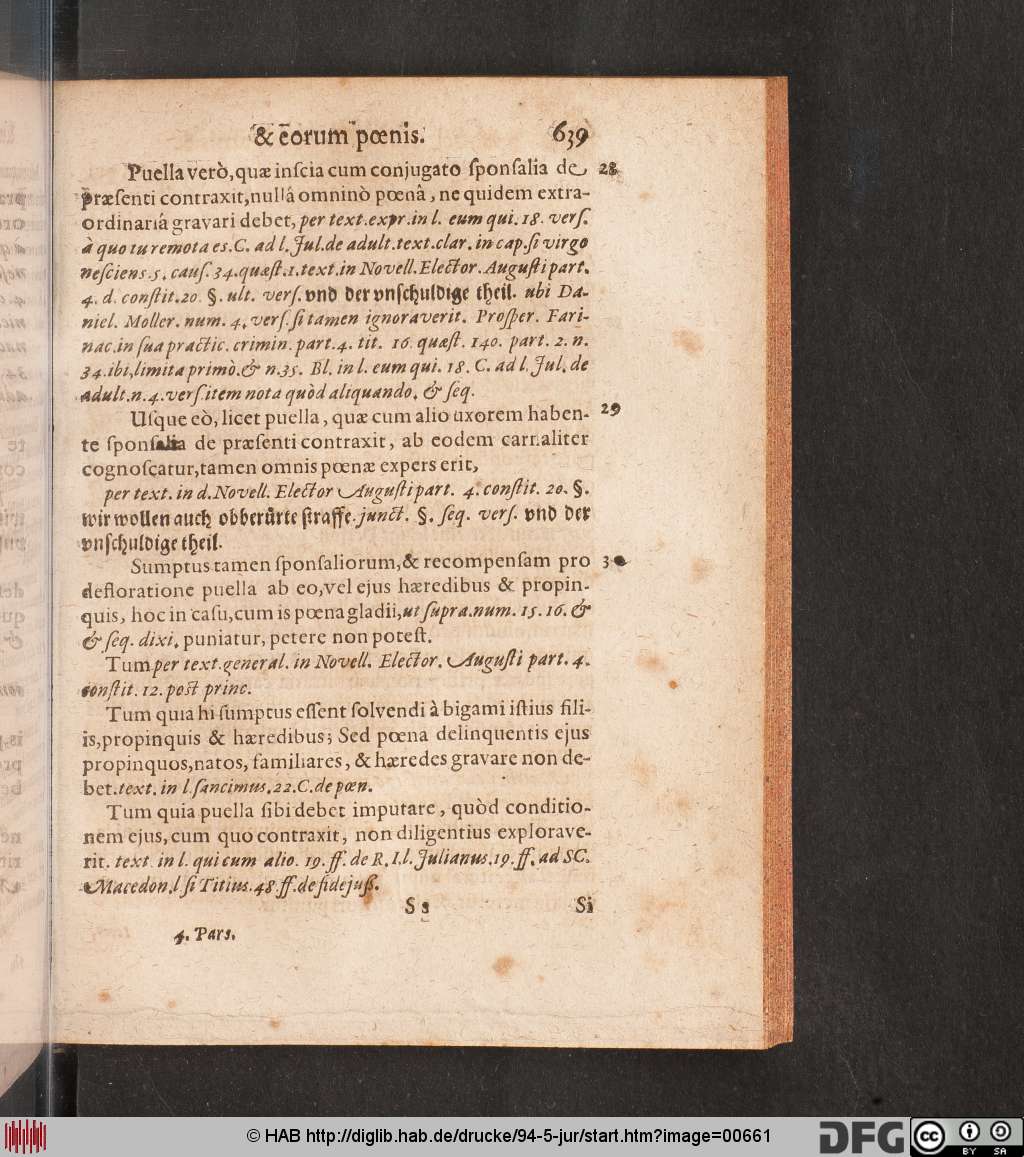 & eorum pœnis. 639
Puella verò, quæ inscia cum conjugato sponsalia de 28
præsenti contraxit, nullâ omninò pœnâ, ne quidem extra-
ordinariâ gravari debet, per text. expr. in l. eum qui. 18. vers.
à quo tu remota es. C. ad l. Jul. de adult. text. clar. in cap. si virgo
nesciens. 5. caus. 34. quæst. 1. text. in Novell. Elector. Augusti part.
4. d. constit. 20. §. ult. vers. vnd der vnschuldige theil. ubi Da-
niel. Moller. num. 4. vers. si tamen ignoraverit. Prosper. Fari-
nac. in sua practic. crimin. part. 4. tit. 16. quæst. 140. part. 2. n.
34. ibi, limita primò. & n. 35. Bl. in l. eum qui. 18. C. ad l. Jul. de
adult. n. 4. vers. item nota quòd aliquando. & seq.
Usque eò, licet puella, quæ cum alio uxorem haben- 29
te sponsalia de præsenti contraxit, ab eodem carnaliter
cognoscatur, tamen omnis pœnæ expers erit,
per text. in d. Novell. Elector Augusti part. 4. constit. 20. §.
wir wollen auch obberürte straffe. junct. §. seq. vers. vnd der
vnschuldige theil.
Sumptus tamen sponsaliorum, & recompensam pro 30
defloratione puella ab eo, vel ejus hæredibus & propin-
quis, hoc in casu, cum is pœna gladii, ut supra. num. 15. 16. &
& seq. dixi, puniatur, petere non potest.
Tum per text. general. in Novell. Elector. Augusti part. 4.
constit. 12. post princ.
Tum quia hi sumptus essent solvendi à bigami istius fili-
is, propinquis & hæredibus; Sed pœna delinquentis ejus
propinquos, natos, familiares, & hæredes gravare non de-
bet. text. in l. sancimus. 22. C. de pœn.
Tum quia puella sibi debet imputare, quòd conditio-
nem ejus, cum quo contraxit, non diligentius explorave-
rit. text. in l. qui cum alio. 19. ff. de R. I. l. Julianus. 19. ff. ad SC.
Macedon. l. si Titius. 48. ff. de fidejuss.
S s Si
4. Pars.
© HAB http://diglib.hab.de/drucke/94-5-jur/start.htm?image=00661
DFG
cc BY SA